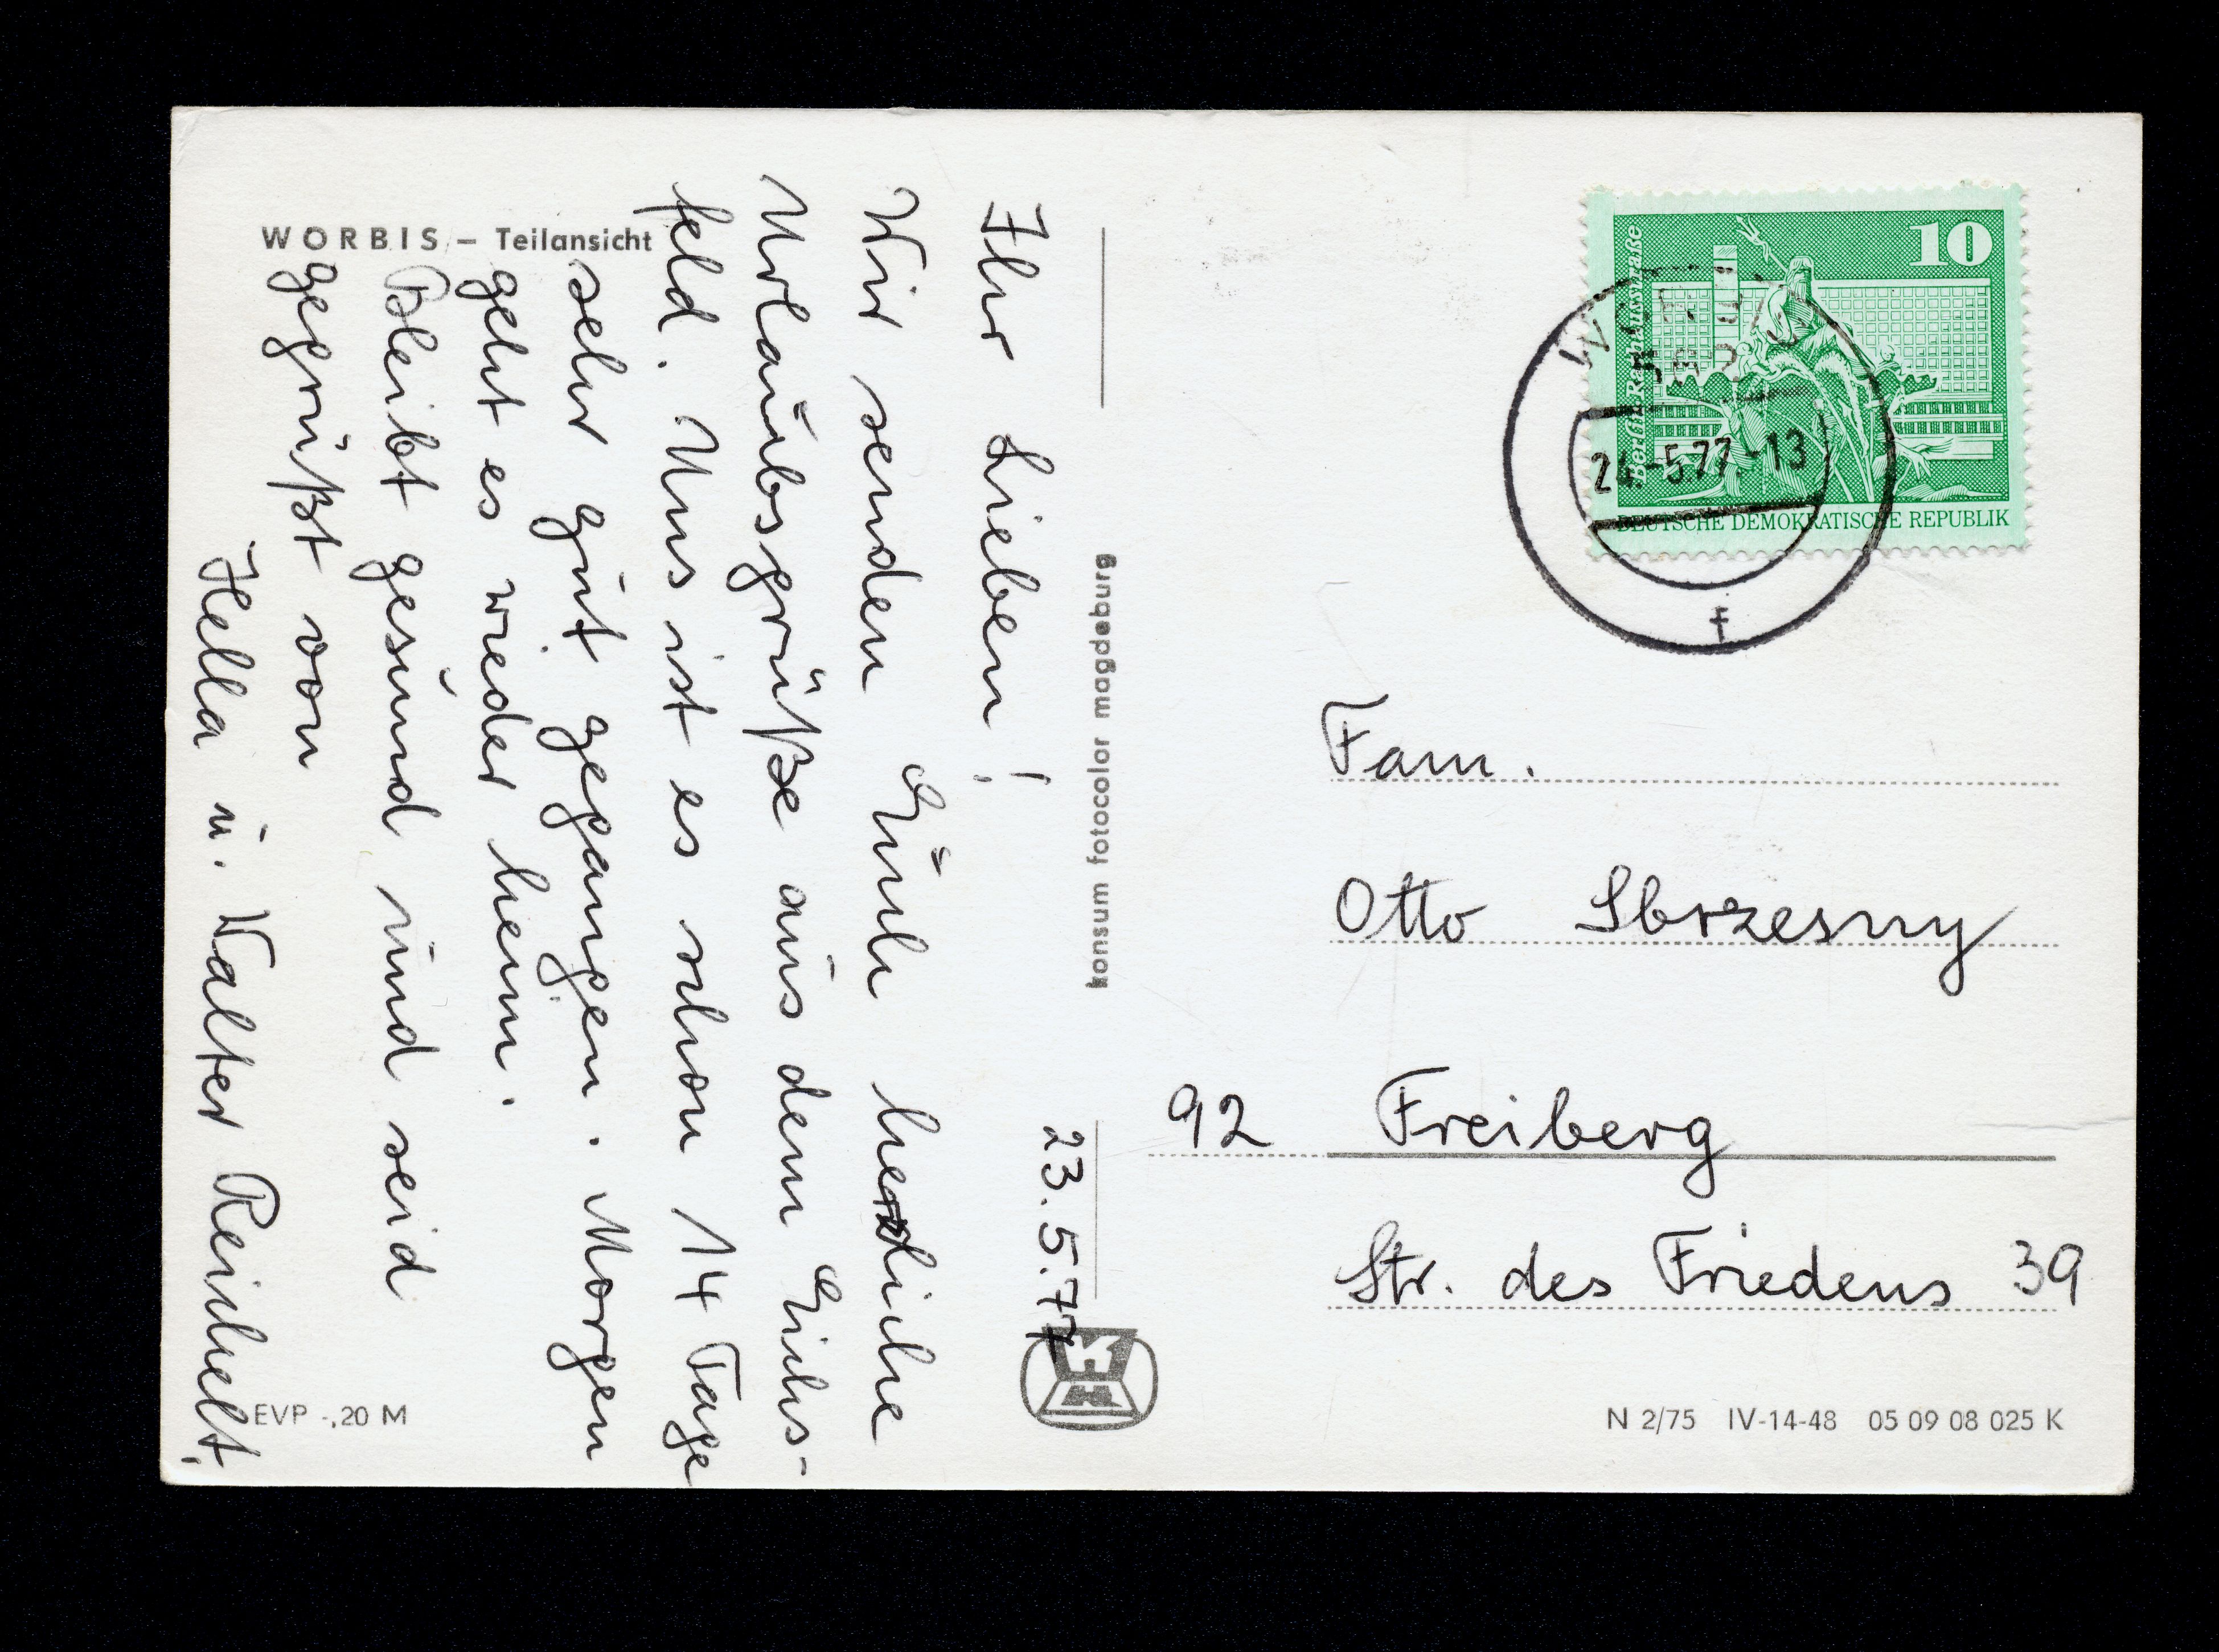 WORBIS – Teilansicht
23.5.77
Ihr Lieben!
Wir senden Euch herzliche
Urlaubsgrüße aus dem Eichs-
feld. Uns ist es schon 14 Tage
sehr gut gegangen. Morgen
geht es wieder heim.
Bleibt gesund und seid
gegrüßt von
Hella u. Walter Reichelt.
EVP -,20 M
konsum fotocolor magdeburg
10
Berlin, Rathausstraße
DEUTSCHE DEMOKRATISCHE REPUBLIK
WORBIS
5603
24.-5.77.-13
f
Fam.
Otto Sbrzesny
92 Freiberg
Str. des Friedens 39
N 2/75 IV-14-48 05 09 08 025 K